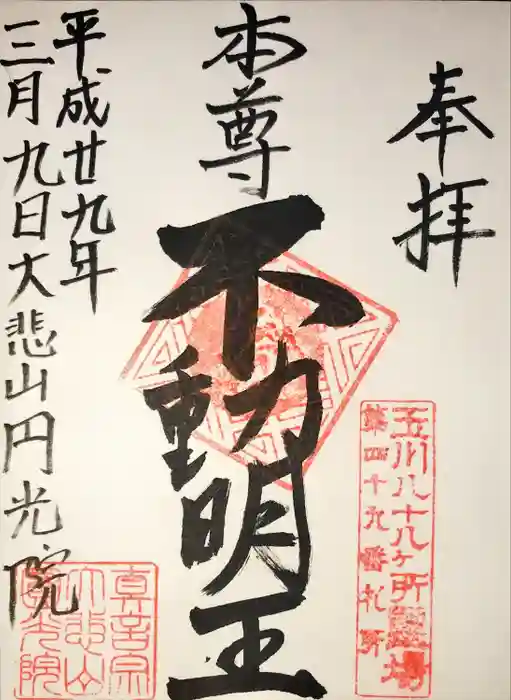 奉拝
玉川八十八ケ所霊場
第四十九番札所
本尊
不動明王
平成廿九年
三月九日大悲山円光院
真言宗
大悲山
円光院